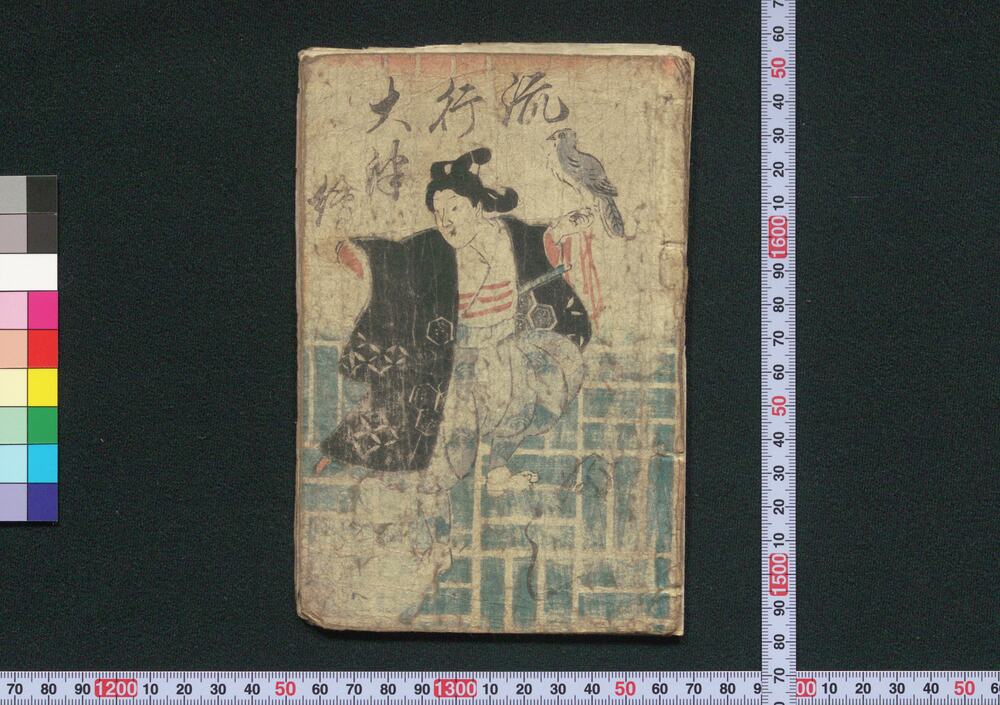 流行大
津
絵
60 50 40 30 20 10 1600 90 80 70 60 50 40 30 20 10 1500 90 80 70
70 80 90 1200 10 20 30 40 50 60 70 80 90 1300 10 20 30 40 50 60 70 80 10 20 30 40 50